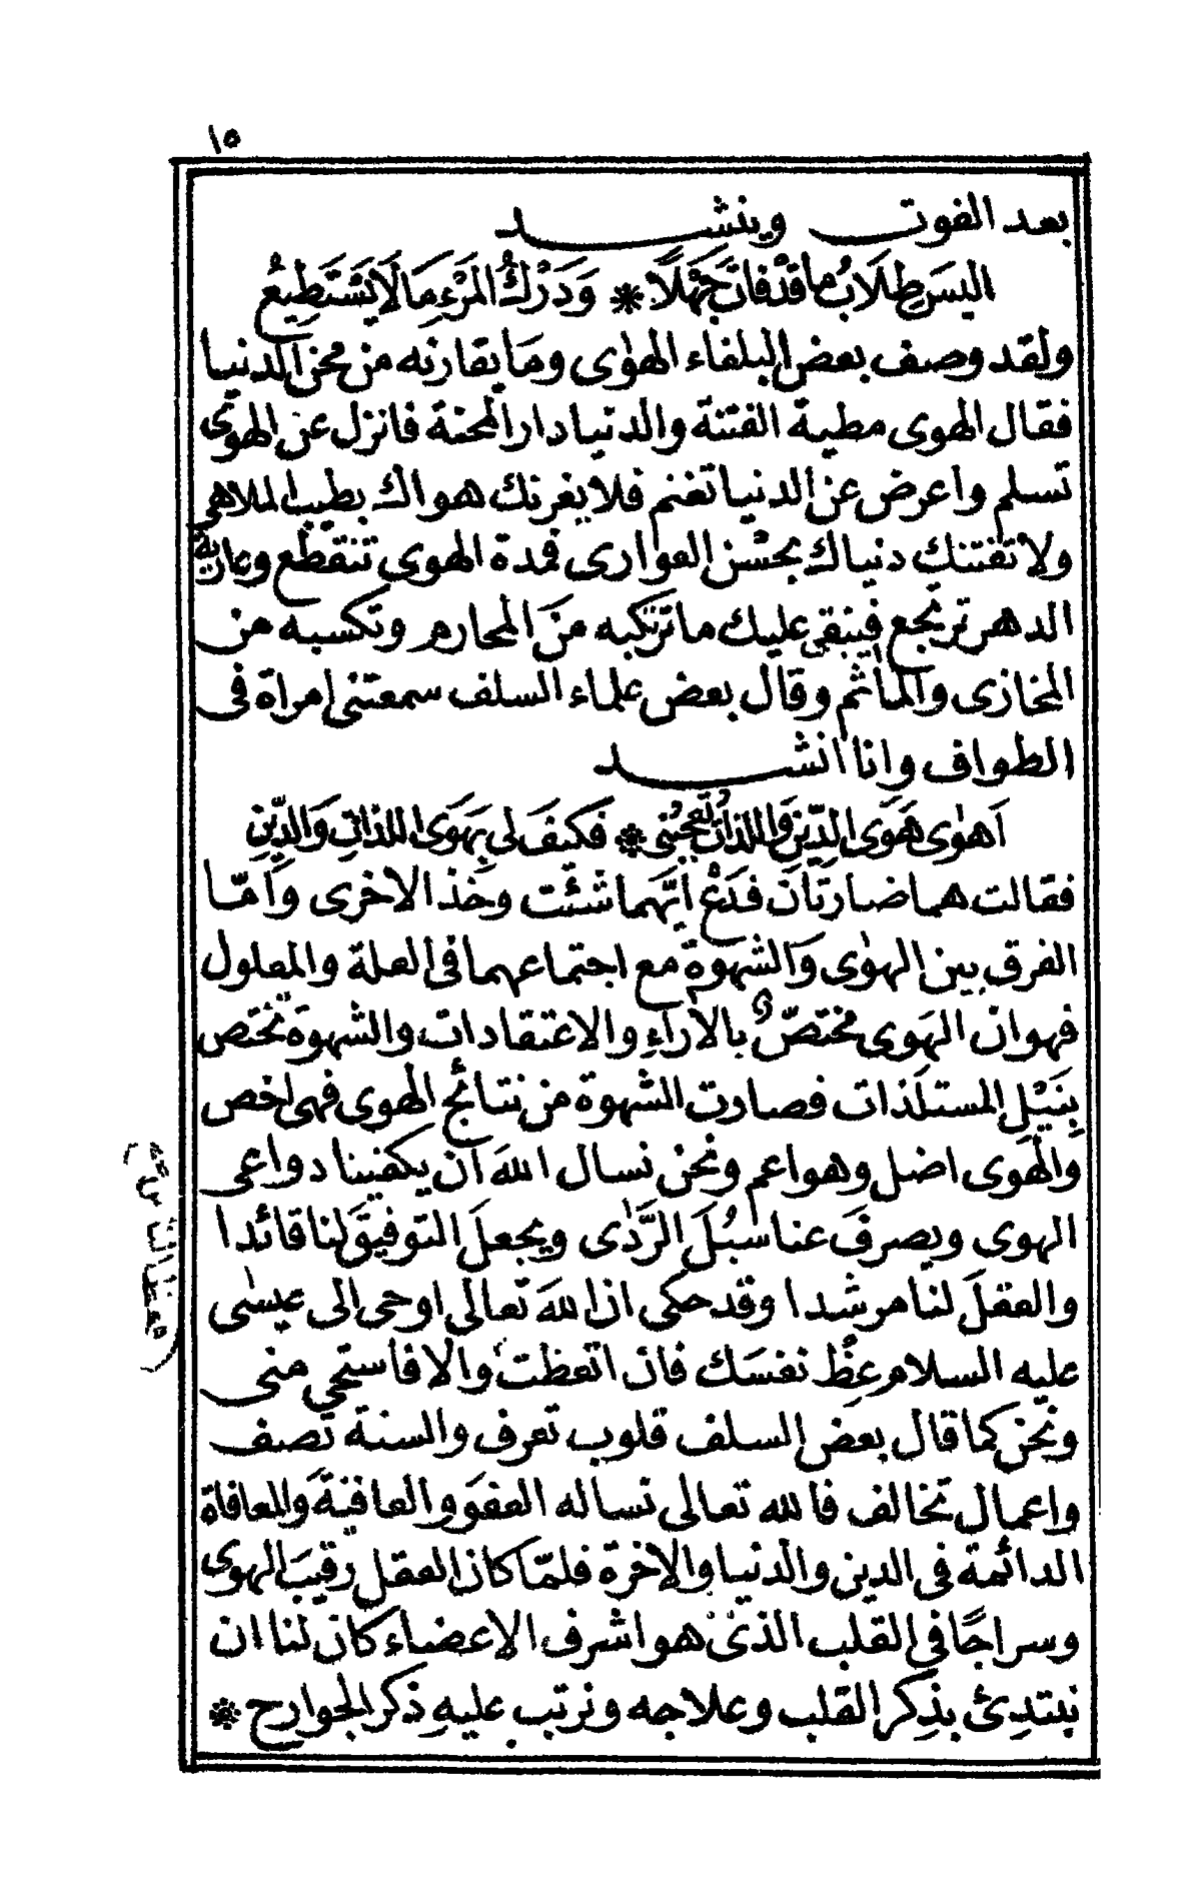 ١٥
بعد الفوت وينشد
اليسَ طِلَابُ ما قَدْ فاتَ جَهْلًا * وَدَرْكُ المَرْءِ مَا لَا يَسْتَطِيعُ
ولقد وصف بعض البلغاء الهوٰى وما يقارنه من محن الدنيا
فقال الهوى مطية الفتنة والدنيا دار المحنة فانزل عن الهوى
تسلم واعرض عن الدنيا تغنم فلا يغرنك هواك بطيب الملاهى
ولا تفتنك دنياك بحُسْن العوارى فمدة الهوى تنقطع وعاريةُ
الدهر ترتجع فيبقى عليك ما ترتكبه منَ المحارم وتكسبه من
المخازى والمآثم وقال بعض علماء السلف سمعتنى امراة فى
الطواف وانا انشد
اَهوٰى هَوَى الدِّينِ وَاللذاتُ تُعجِبُنى * فكيفَ لى بِهَوَى اللذاتِ وَالدِّينِ
فقالت هما ضارتان فدَعْ ايَّهما شئت وخذ الاخرى وَامّا
الفرق بين الهوٰى وَالشهوة مع اجتماعهما فى العلة والمعلول
فهو انّ الهَوى مختصّ بالاراءِ والاعتقادات والشهوة تختص
بِنَيْلِ المستلذات فصارت الشهوة من نتائج الهوى فهى اخص
والهَوى اضل وهو اعم ونحن نسال اللهَ ان يكفينا دواعى
الهوى ويصرفَ عنا سُبُلَ الرَّدٰى ويجعلَ التوفيقَ لنا قائدا
والعقلَ لنا مرشدا وقد حكى ان اللهَ تعالى اوحى الى عيسٰى
عليه السلام عِظْ نفسَك فان اتعظتْ والا فاستحي منى
ونحن كما قال بعض السلف قلوب تعرف والسنة تصف
واعمال تخالف فالله تعالى نساله العفوَ والعافيةَ والمعافاة
الدائمة فى الدين والدنيا والاخرة فلمّا كان العقل رقيبَ الهوى
وسراجًا فى القلب الذى هو اشرف الاعضاء كان لنا ان
نبتدِئ بذِكر القلب وعلاجه ونرتب عليهِ ذكر الجوارح *